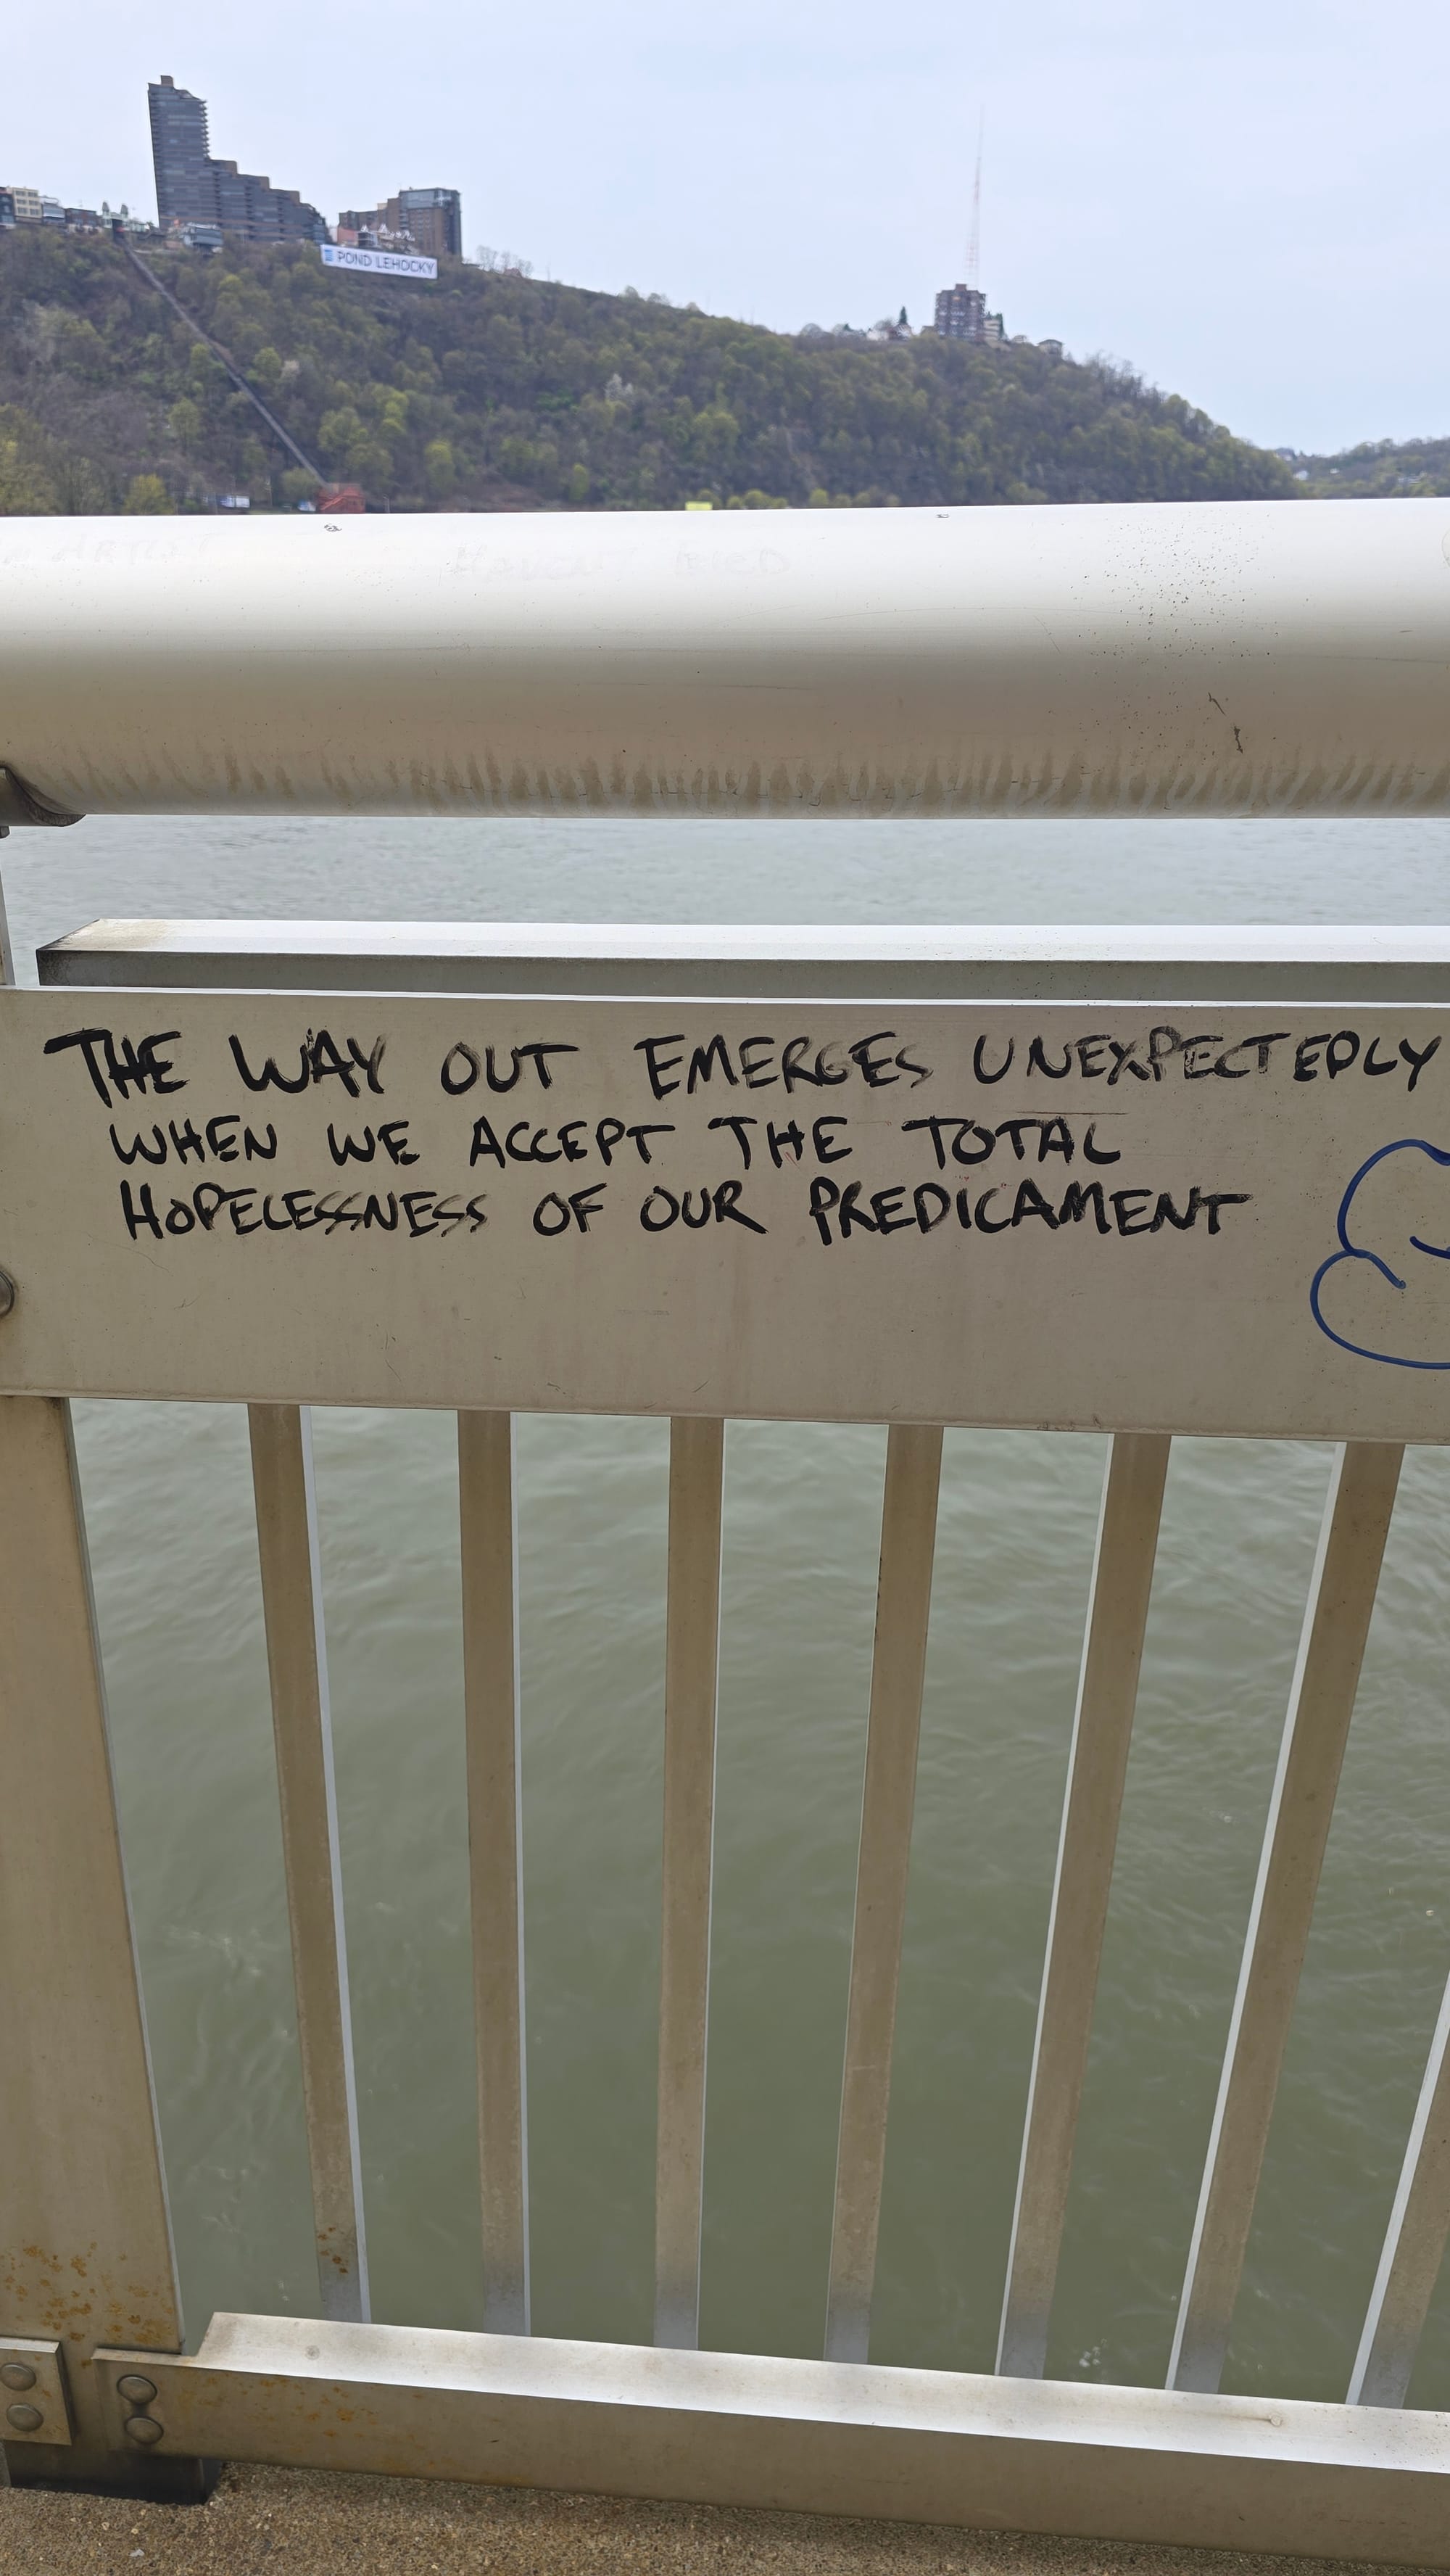 POND LEHOCKY
THE WAY OUT EMERGES UNEXPECTEDLY
WHEN WE ACCEPT THE TOTAL
HOPELESSNESS OF OUR PREDICAMENT